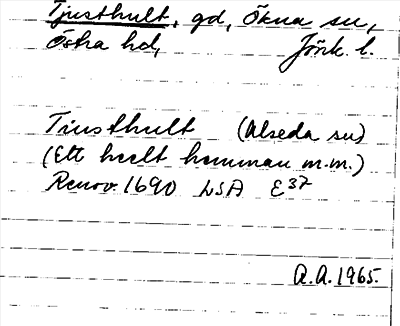 Tjusthult, gd, Ökna sn,
Östra hd, Jönk. l.
Tiusthult (Alseda sn)
(Ett heelt hemman m.m.)
Renov. 1690 LSA E37
A.A. 1965.